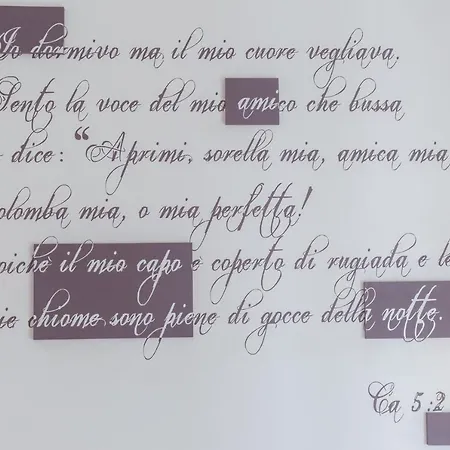 Io dormivo ma il mio cuore vegliava.
Sento la voce del mio amico che bussa
dice: “Aprimi, sorella mia, amica mia
olomba mia, o mia perfetta!
poichè il mio capo e coperto di rugiada e le
ie chiome sono piene di gocce della notte.
Ca 5:2